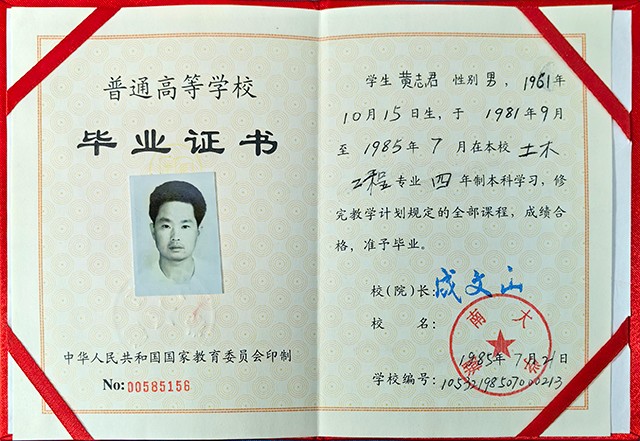 普通高等学校
毕业证书
中华人民共和国国家教育委员会印制
No:00585156
学生 黄志君 性别 男，1961年
10月15日生，于 1981年9月
至 1985年7月在本校 土木
工程 专业 四 年制本科学习，修
完教学计划规定的全部课程，成绩合
格，准予毕业。
校(院)长:成文山
校 名:
湖南大学
1985年7月21日
学校编号:10532198507000213